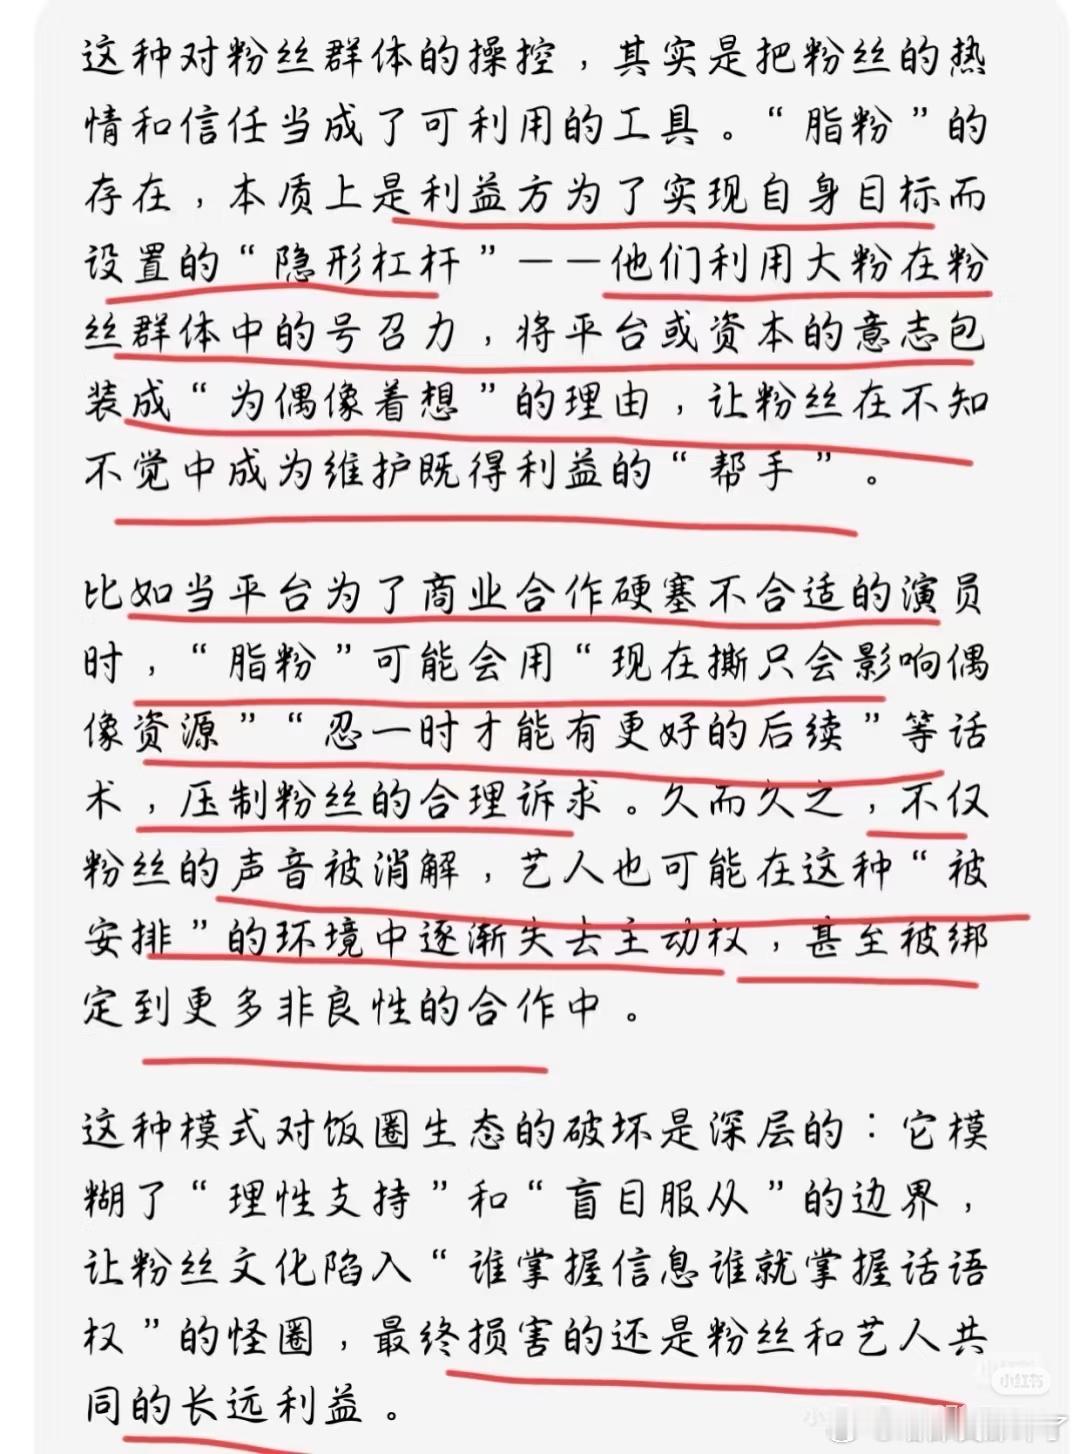 这种对粉丝群体的操控，其实是把粉丝的热
情和信任当成了可利用的工具。“脂粉”的
存在，本质上是利益方为了实现自身目标而
设置的“隐形杠杆”——他们利用大粉在粉
丝群体中的号召力，将平台或资本的意志包
装成“为偶像着想”的理由，让粉丝在不知
不觉中成为维护既得利益的“帮手”。
比如当平台为了商业合作硬塞不合适的演员
时，“脂粉”可能会用“现在撕只会影响偶
像资源”“忍一时才能有更好的后续”等话
术，压制粉丝的合理诉求。久而久之，不仅
粉丝的声音被消解，艺人也可能在这种“被
安排”的环境中逐渐失去主动权，甚至被绑
定到更多非良性的合作中。
这种模式对饭圈生态的破坏是深层的：它模
糊了“理性支持”和“盲目服从”的边界，
让粉丝文化陷入“谁掌握信息谁就掌握话语
权”的怪圈，最终损害的还是粉丝和艺人共
同的长远利益。
小红书